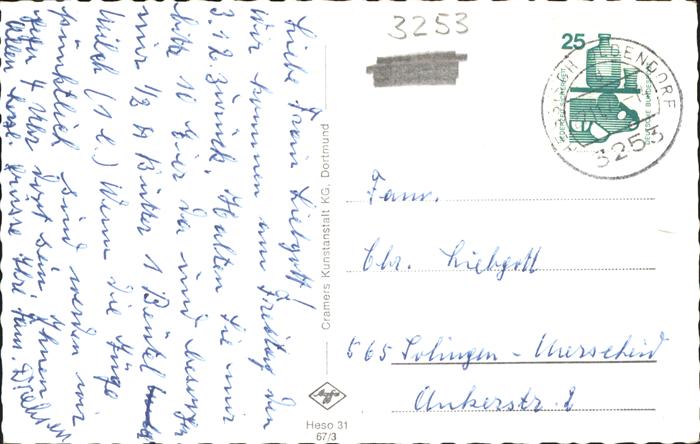 Liebe Frau Liebgott!
Wir kommen am Freitag den
3.12. zurück. Halten Sie mir
bitte 10 Eier da und besorgen
mir 1/2 H Butter 1 Beutel
Milch (1 l.) Wenn die Züge
pünktlich sind werden wir
gegen 4 Uhr dort sein. Ihnen
allen herzl. Grüsse Ihre Fam.
Cramers Kunstanstalt KG. Dortmund
Heso 31
67/3
3253
25
DEUTSCHE BUNDESPOST
3253
Fam.
Chr. Liebgott
565 Solingen - Merscheid
Ankerstr. 2